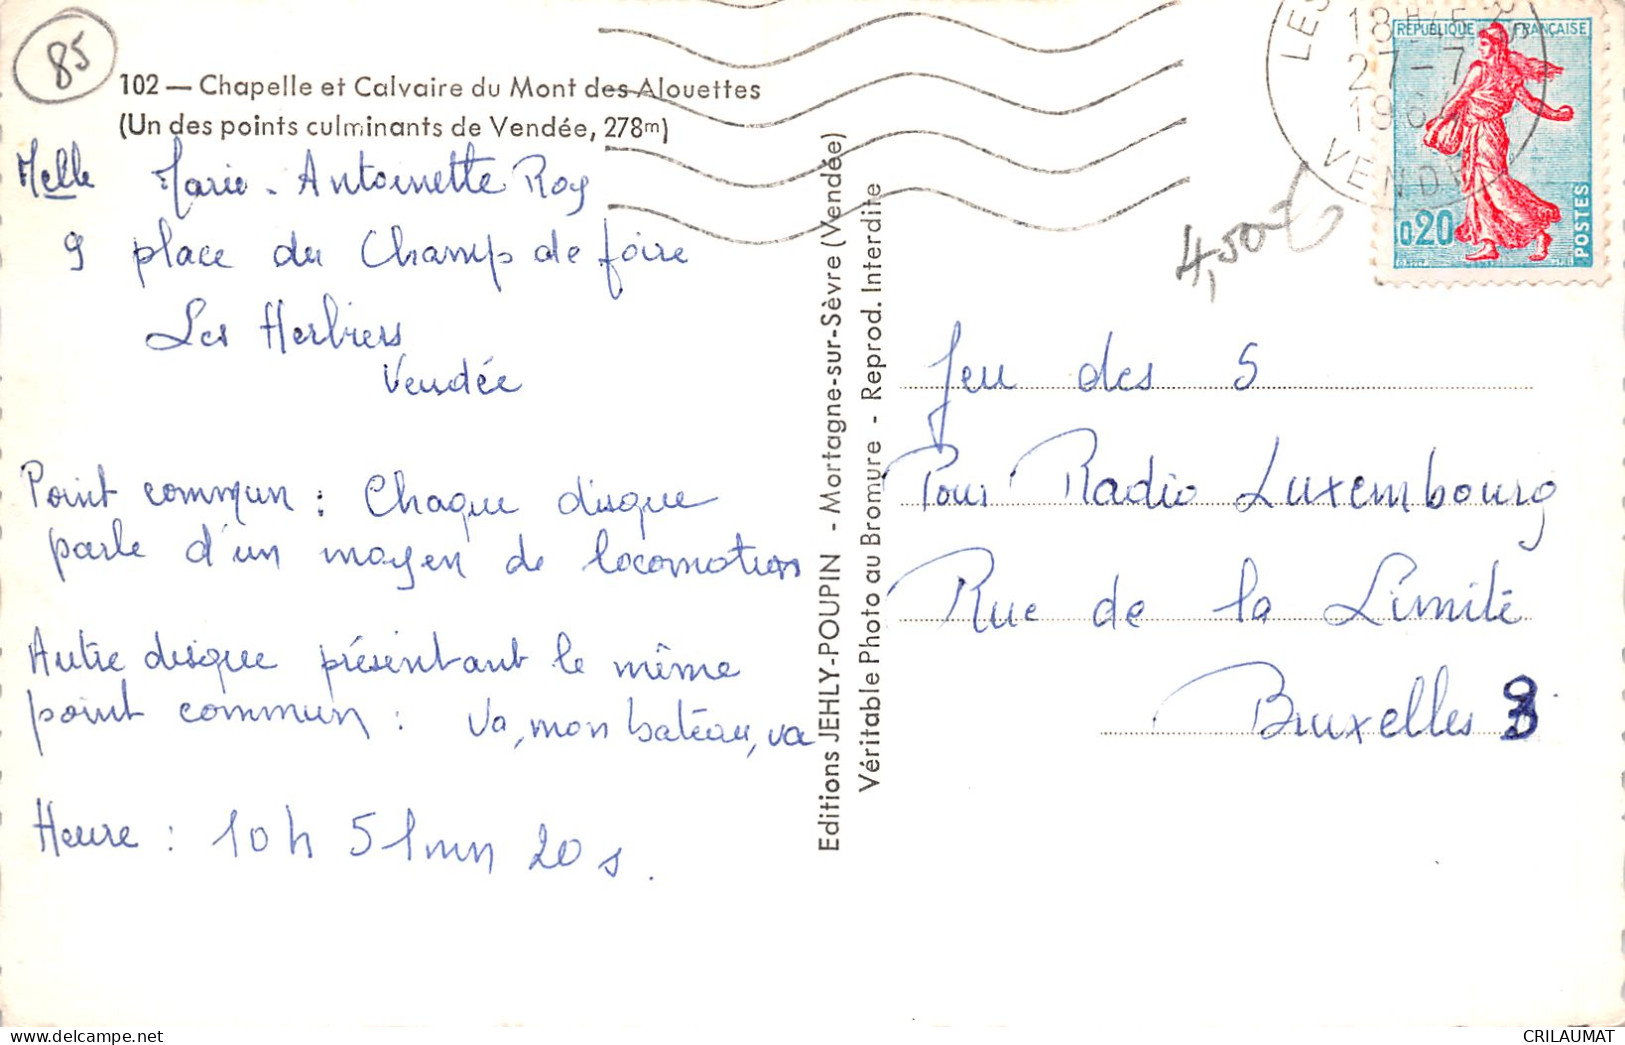 85
102 — Chapelle et Calvaire du Mont des Alouettes
(Un des points culminants de Vendée, 278m)
Melle Marie-Antoinette Roy
9 place du Champ de foire
Les Herbiers
Vendée
Point commun : Chaque disque
parle d'un moyen de locomotion
Autre disque présentant le même
point commun : Va, mon bateau, va
Heure : 10 h 51 mn 20 s.
Editions JEHLY-POUPIN - Mortagne-sur-Sèvre (Vendée)
Véritable Photo au Bromure - Reprod. Interdite
LES
18H45
27-7
VENDÉE
REPUBLIQUE FRANÇAISE
0,20
POSTES
4,50
Jeu des 5
Pour Radio Luxembourg
Rue de la Limite
Bruxelles 3
CRILAUMAT